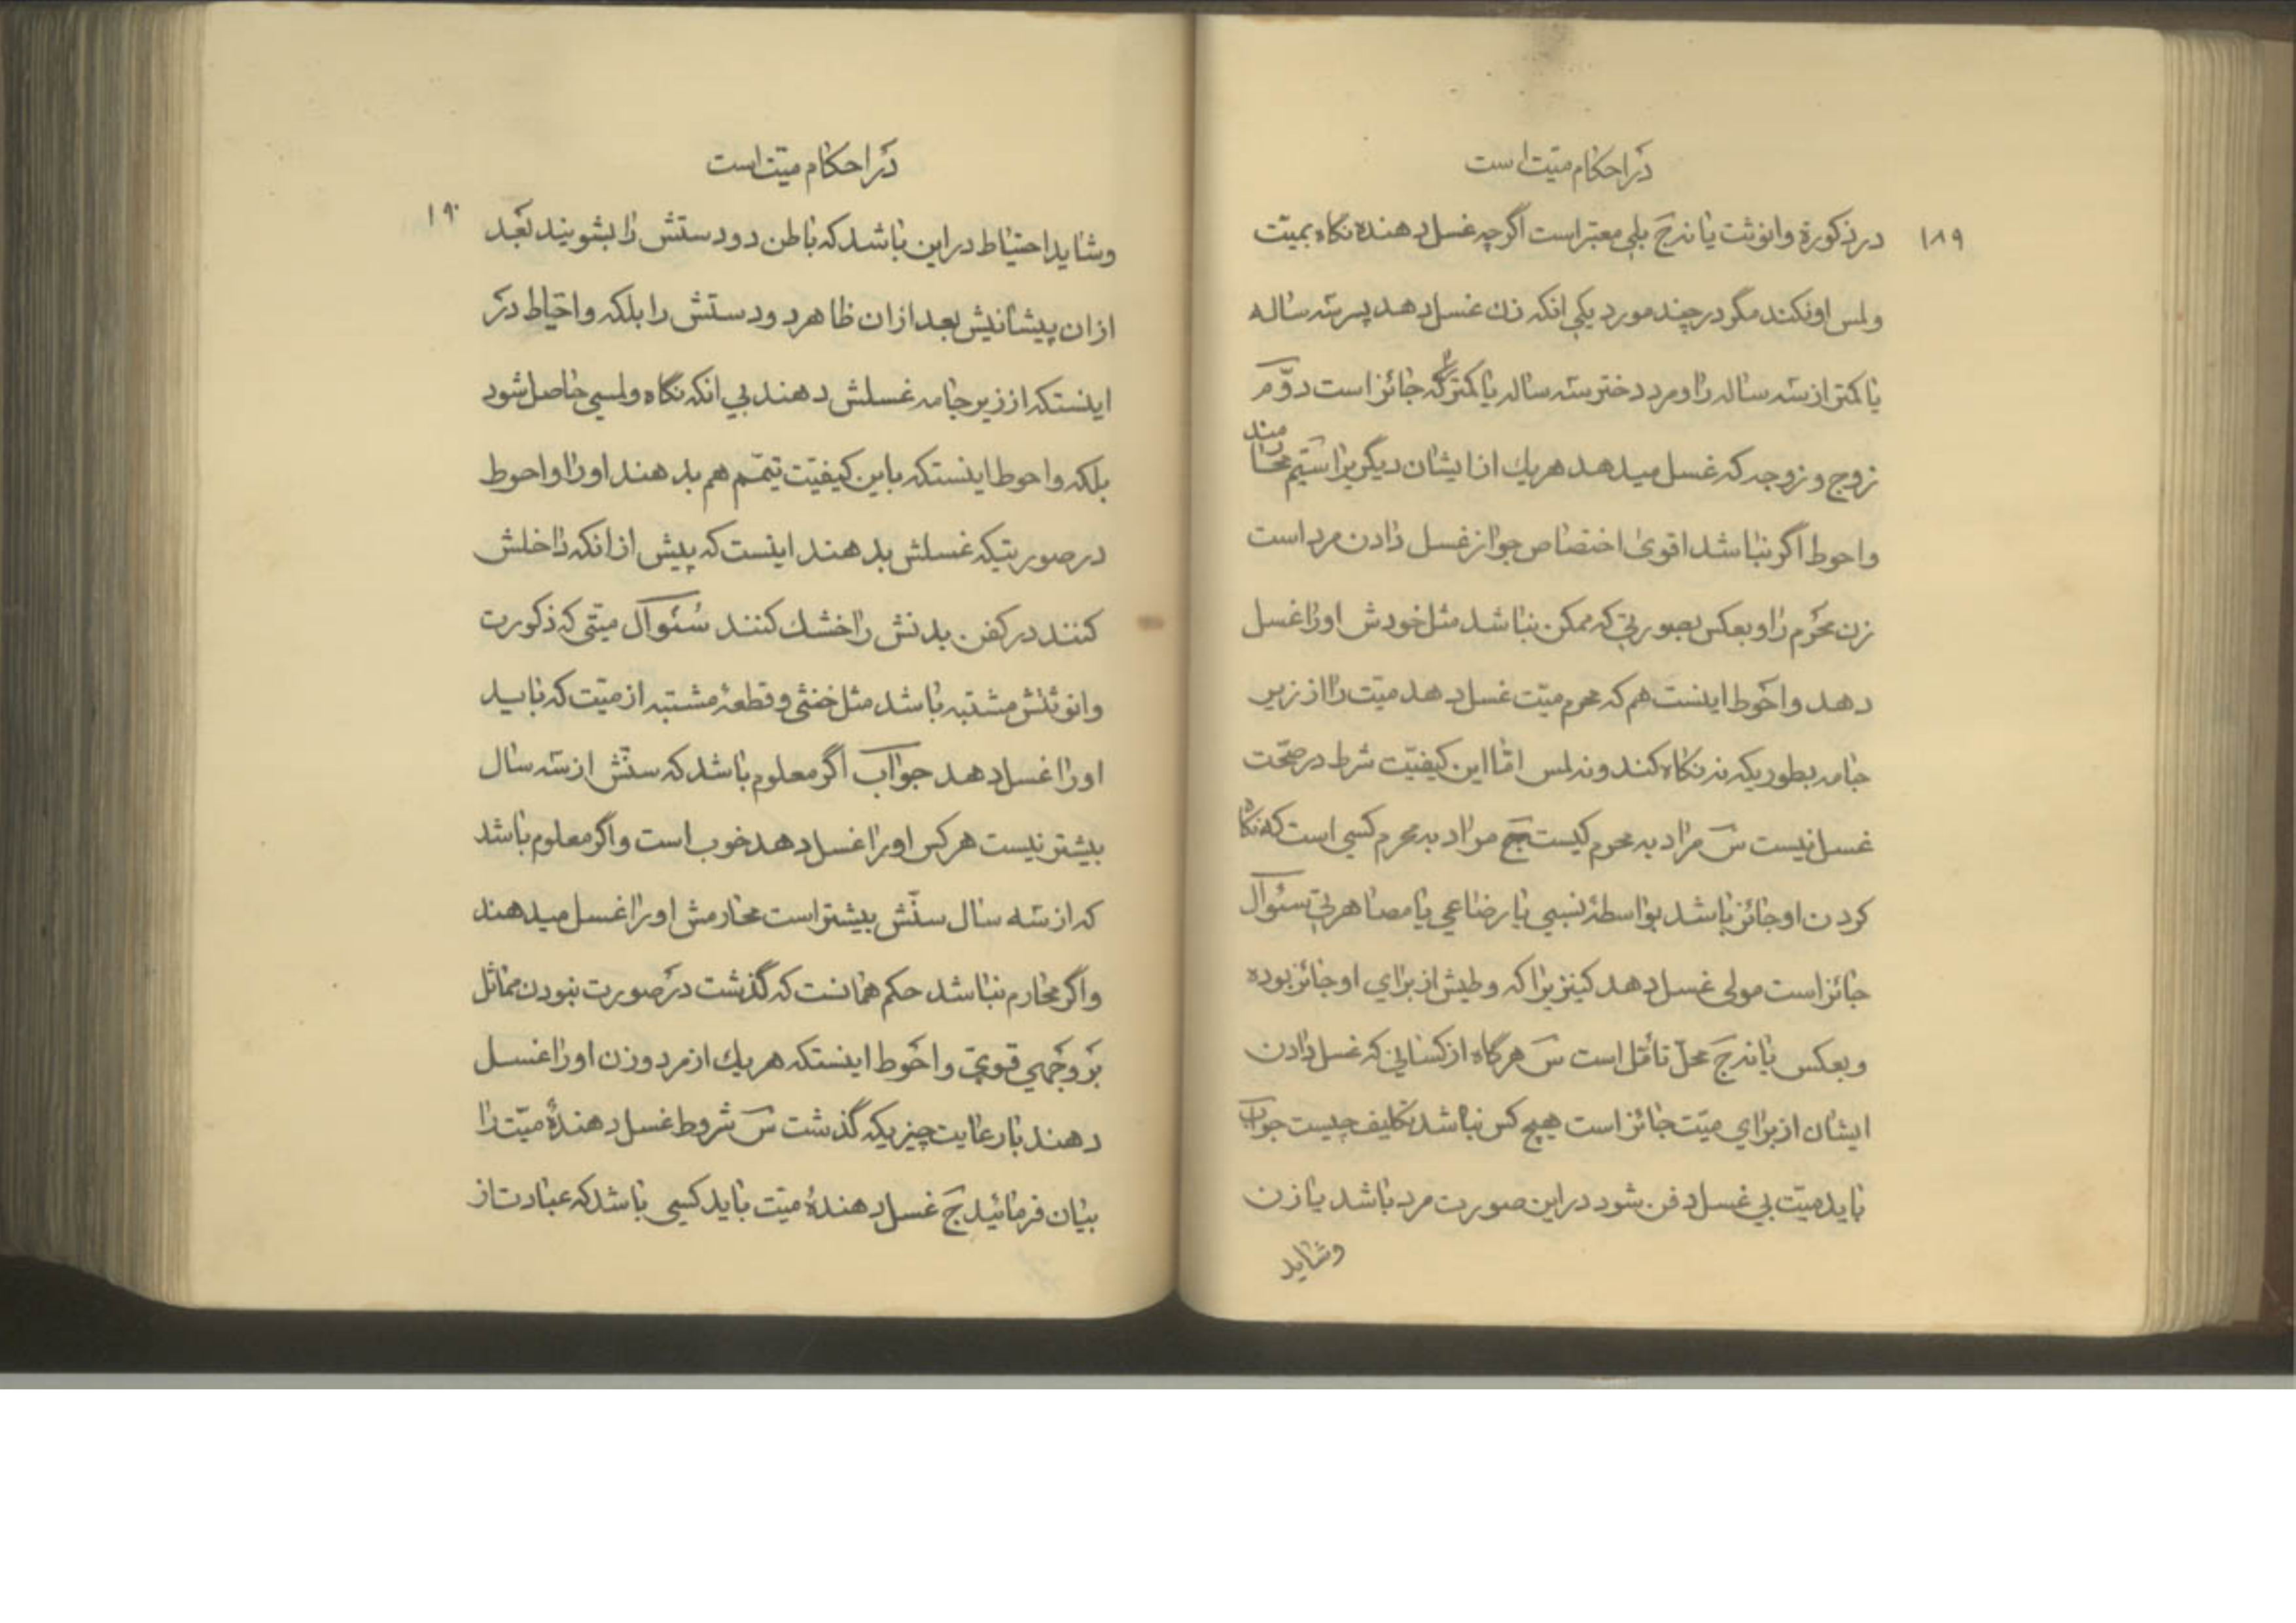 در احکام میّت است
۱۸۹
در ذکورة وانوثت یا نه جَ بلی معتبر است اگرچه غسل دهنده نگاه بمیّت
ولمس او نکند مگر در چند مورد یکی انکه زن غسل دهد پسر سه ساله
یا کمتر از سه ساله را و مرد دختر سه ساله یا کمتر که جائز است دوّم
زوج و زوجه که غسل میدهد هر یك از ایشان دیگریرا سیّم محارمند
واحوط اگر نباشد اقوی اختصاص جواز غسل دادن مرد است
زن محرم را و بعکس بصورتی که ممکن نباشد مثل خودش اورا غسل
دهد واحَوط اینست هم که محرم میّت غسل دهد میّت را از زیر
جامه بطوریکه نه نگاه کند و نه لمس امّا این کیفیّت شرط در صحّت
غسل نیست سَ مراد به محرم کیست جَ مراد به محرم کسی است که نگاه
کردن او جائز باشد بواسطهٔ نسبی یا رضاعی یا مصاهرتی سئوال
جائز است مولی غسل دهد کنیزیرا که وطیش از برای او جائز بوده
و بعکس یا نه جَ محلّ تأمّل است سَ هرگاه از کسانی که غسل دادن
ایشان از برای میّت جائز است هیچ کس نباشد تکلیف چیست جواب
باید میّت بی غسل دفن شود در این صورت مرد باشد یا زن
وشاید
در احکام میّت است
۱۹۰
وشاید احتیاط در این باشد که باطن دو دستش را بشویند بَعَد
از ان پیشانیش بعد از ان ظاهر دو دستش را بلکه واحتیاط در
اینستکه از زیر جامه غسلش دهند بی انکه نگاه ولمسی حاصل شود
بلکه واحوط اینستکه باین کیفیّت تیمّم هم بدهند اورا واحوط
در صورتیکه غسلش بدهند اینست که پیش از انکه داخلش
کنند در کفن بدنش را خشك کنند سُئوال میّتی که ذکورت
وانوثتش مشتبه باشد مثل خنثی و قطعهٔ مشتبه از میّت که باید
اورا غسل دهد جواب اگر معلوم باشد که سنّش از سه سال
بیشتر نیست هر کس اورا غسل دهد خوب است واگر معلوم باشد
که از سه سال سنّش بیشتر است محارمش اورا غسل میدهند
واگر محارم نباشد حکم همانست که گذشت در صورت نبودن مماثل
بَر وَجَهی قویّ واحَوط اینستکه هر یك از مرد وزن اورا غسل
دهند با رعایت چیزیکه گذشت سَ شروط غسل دهندهٔ میّت را
بیان فرمائید جَ غسل دهندهٔ میّت باید کسی باشد که عبادت از